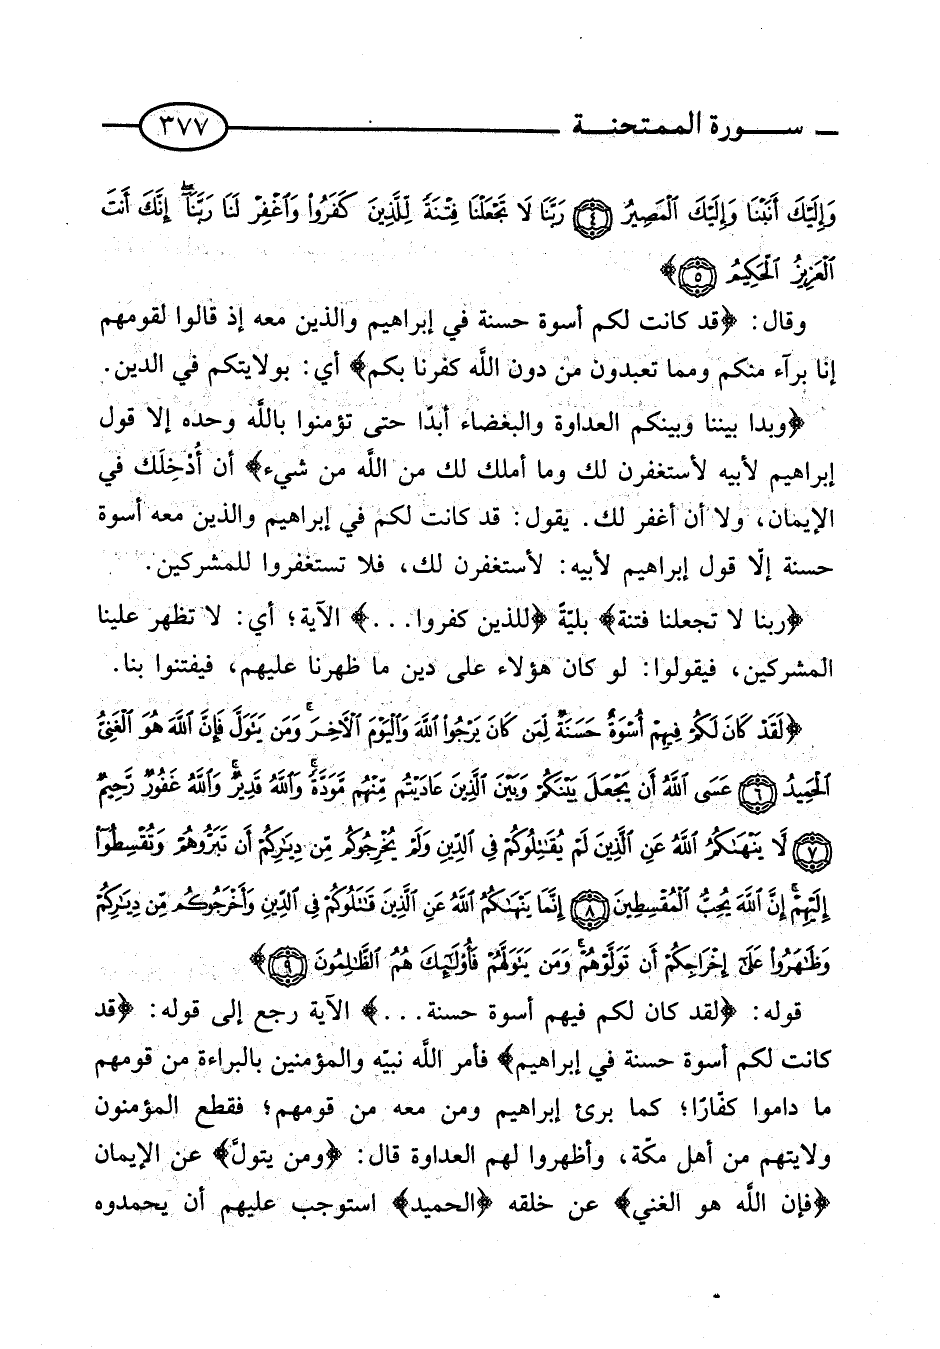 سورة الممتحنة ٣٧٧
وَإِلَيْكَ أَنَبْنَا وَإِلَيْكَ الْمَصِيرُ ٤ رَبَّنَا لَا تَجْعَلْنَا فِتْنَةً لِّلَّذِينَ كَفَرُوا۟ وَاغْفِرْ لَنَا رَبَّنَآ ۖ إِنَّكَ أَنتَ
الْعَزِيزُ الْحَكِيمُ ٥﴾
وقال: ﴿قد كانت لكم أسوة حسنة في إبراهيم والذين معه إذ قالوا لقومهم
إنا برآء منكم ومما تعبدون من دون اللَّه كفرنا بكم﴾ أي: بولايتكم في الدين.
﴿وبدا بيننا وبينكم العداوة والبغضاء أبدًا حتى تؤمنوا باللَّه وحده إلا قول
إبراهيم لأبيه لأستغفرن لك وما أملك لك من اللَّه من شيء﴾ أن أُدْخِلَك في
الإيمان، ولا أن أغفر لك. يقول: قد كانت لكم في إبراهيم والذين معه أسوة
حسنة إلّا قول إبراهيم لأبيه: لأستغفرن لك، فلا تستغفروا للمشركين.
﴿ربنا لا تجعلنا فتنة﴾ بليّةً ﴿للذين كفروا...﴾ الآية؛ أي: لا تظهر علينا
المشركين، فيقولوا: لو كان هؤلاء على دين ما ظهرنا عليهم، فيفتنوا بنا.
﴿لَقَدْ كَانَ لَكُمْ فِيهِمْ أُسْوَةٌ حَسَنَةٌ لِّمَن كَانَ يَرْجُوا۟ اللَّهَ وَالْيَوْمَ الْآخِرَ ۚ وَمَن يَتَوَلَّ فَإِنَّ اللَّهَ هُوَ الْغَنِيُّ
الْحَمِيدُ ٦ عَسَى اللَّهُ أَن يَجْعَلَ بَيْنَكُمْ وَبَيْنَ الَّذِينَ عَادَيْتُم مِّنْهُم مَّوَدَّةً ۚ وَاللَّهُ قَدِيرٌ ۚ وَاللَّهُ غَفُورٌ رَّحِيمٌ
٧ لَّا يَنْهَىٰكُمُ اللَّهُ عَنِ الَّذِينَ لَمْ يُقَٰتِلُوكُمْ فِي الدِّينِ وَلَمْ يُخْرِجُوكُم مِّن دِيَٰرِكُمْ أَن تَبَرُّوهُمْ وَتُقْسِطُوٓا۟
إِلَيْهِمْ ۚ إِنَّ اللَّهَ يُحِبُّ الْمُقْسِطِينَ ٨ إِنَّمَا يَنْهَىٰكُمُ اللَّهُ عَنِ الَّذِينَ قَٰتَلُوكُمْ فِي الدِّينِ وَأَخْرَجُوكُم مِّن دِيَٰرِكُمْ
وَظَٰهَرُوا۟ عَلَىٰٓ إِخْرَاجِكُمْ أَن تَوَلَّوْهُمْ ۚ وَمَن يَتَوَلَّهُمْ فَأُو۟لَٰٓئِكَ هُمُ الظَّٰلِمُونَ ٩﴾
قوله: ﴿لقد كان لكم فيهم أسوة حسنة...﴾ الآية رجع إلى قوله: ﴿قد
كانت لكم أسوة حسنة في إبراهيم﴾ فأمر اللَّه نبيّه والمؤمنين بالبراءة من قومهم
ما داموا كفّارًا؛ كما برئ إبراهيم ومن معه من قومهم؛ فقطع المؤمنون
ولايتهم من أهل مكّة، وأظهروا لهم العداوة قال: ﴿ومن يتولَّ﴾ عن الإيمان
﴿فإن اللَّه هو الغني﴾ عن خلقه ﴿الحميد﴾ استوجب عليهم أن يحمدوه